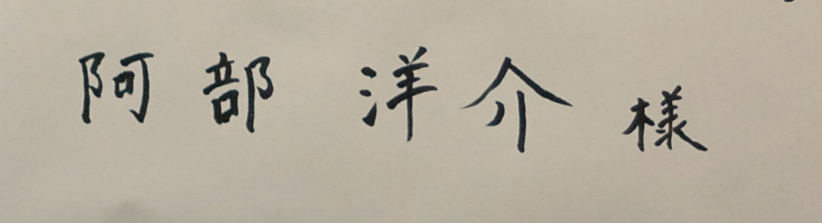 阿部 洋介 様